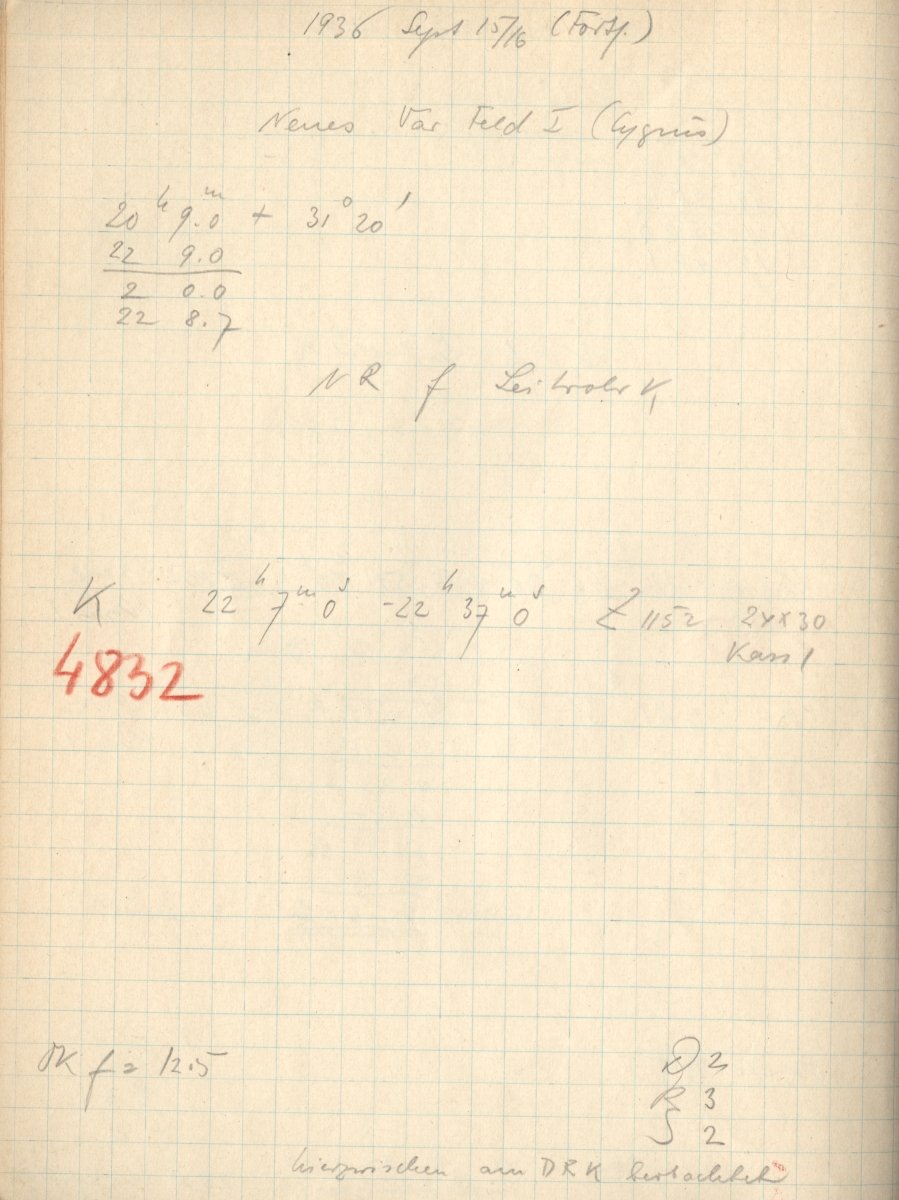 1936 Sept 15/16 (Forts.)
Neues Var Feld I (Cygnus)
20ʰ 9.0ᵐ + 31° 20'
22 9.0
2 0.0
22 8.7
NR f Leitrohr K₁
K 22ʰ 7ᵐ 0ˢ - 22ʰ 37ᵐ 0ˢ Z 1152 24x30
Kass 1
4832
OK f = 12.5
D 2
R 3
S 2
hierzwischen am DRK beobachtet